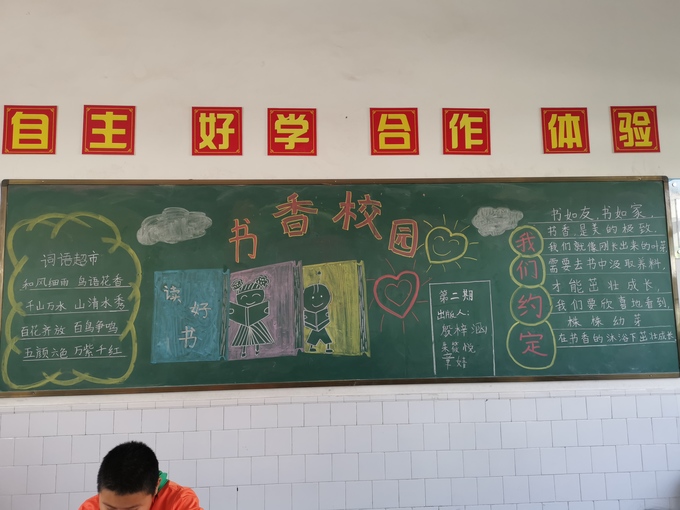 自主 好学 合作 体验
书香校园
词语超市
和风细雨 鸟语花香
千山万水 山清水秀
百花齐放 百鸟争鸣
五颜六色 万紫千红
读好书
第二期
出版人:
我们约定
书如友,书如家,
书香是美的极致
我们就像刚长出来的叶芽
需要去书中汲取养料,
才能茁壮成长,
我们要欣喜地看到
株株幼芽
在书香的沐浴下茁壮成长